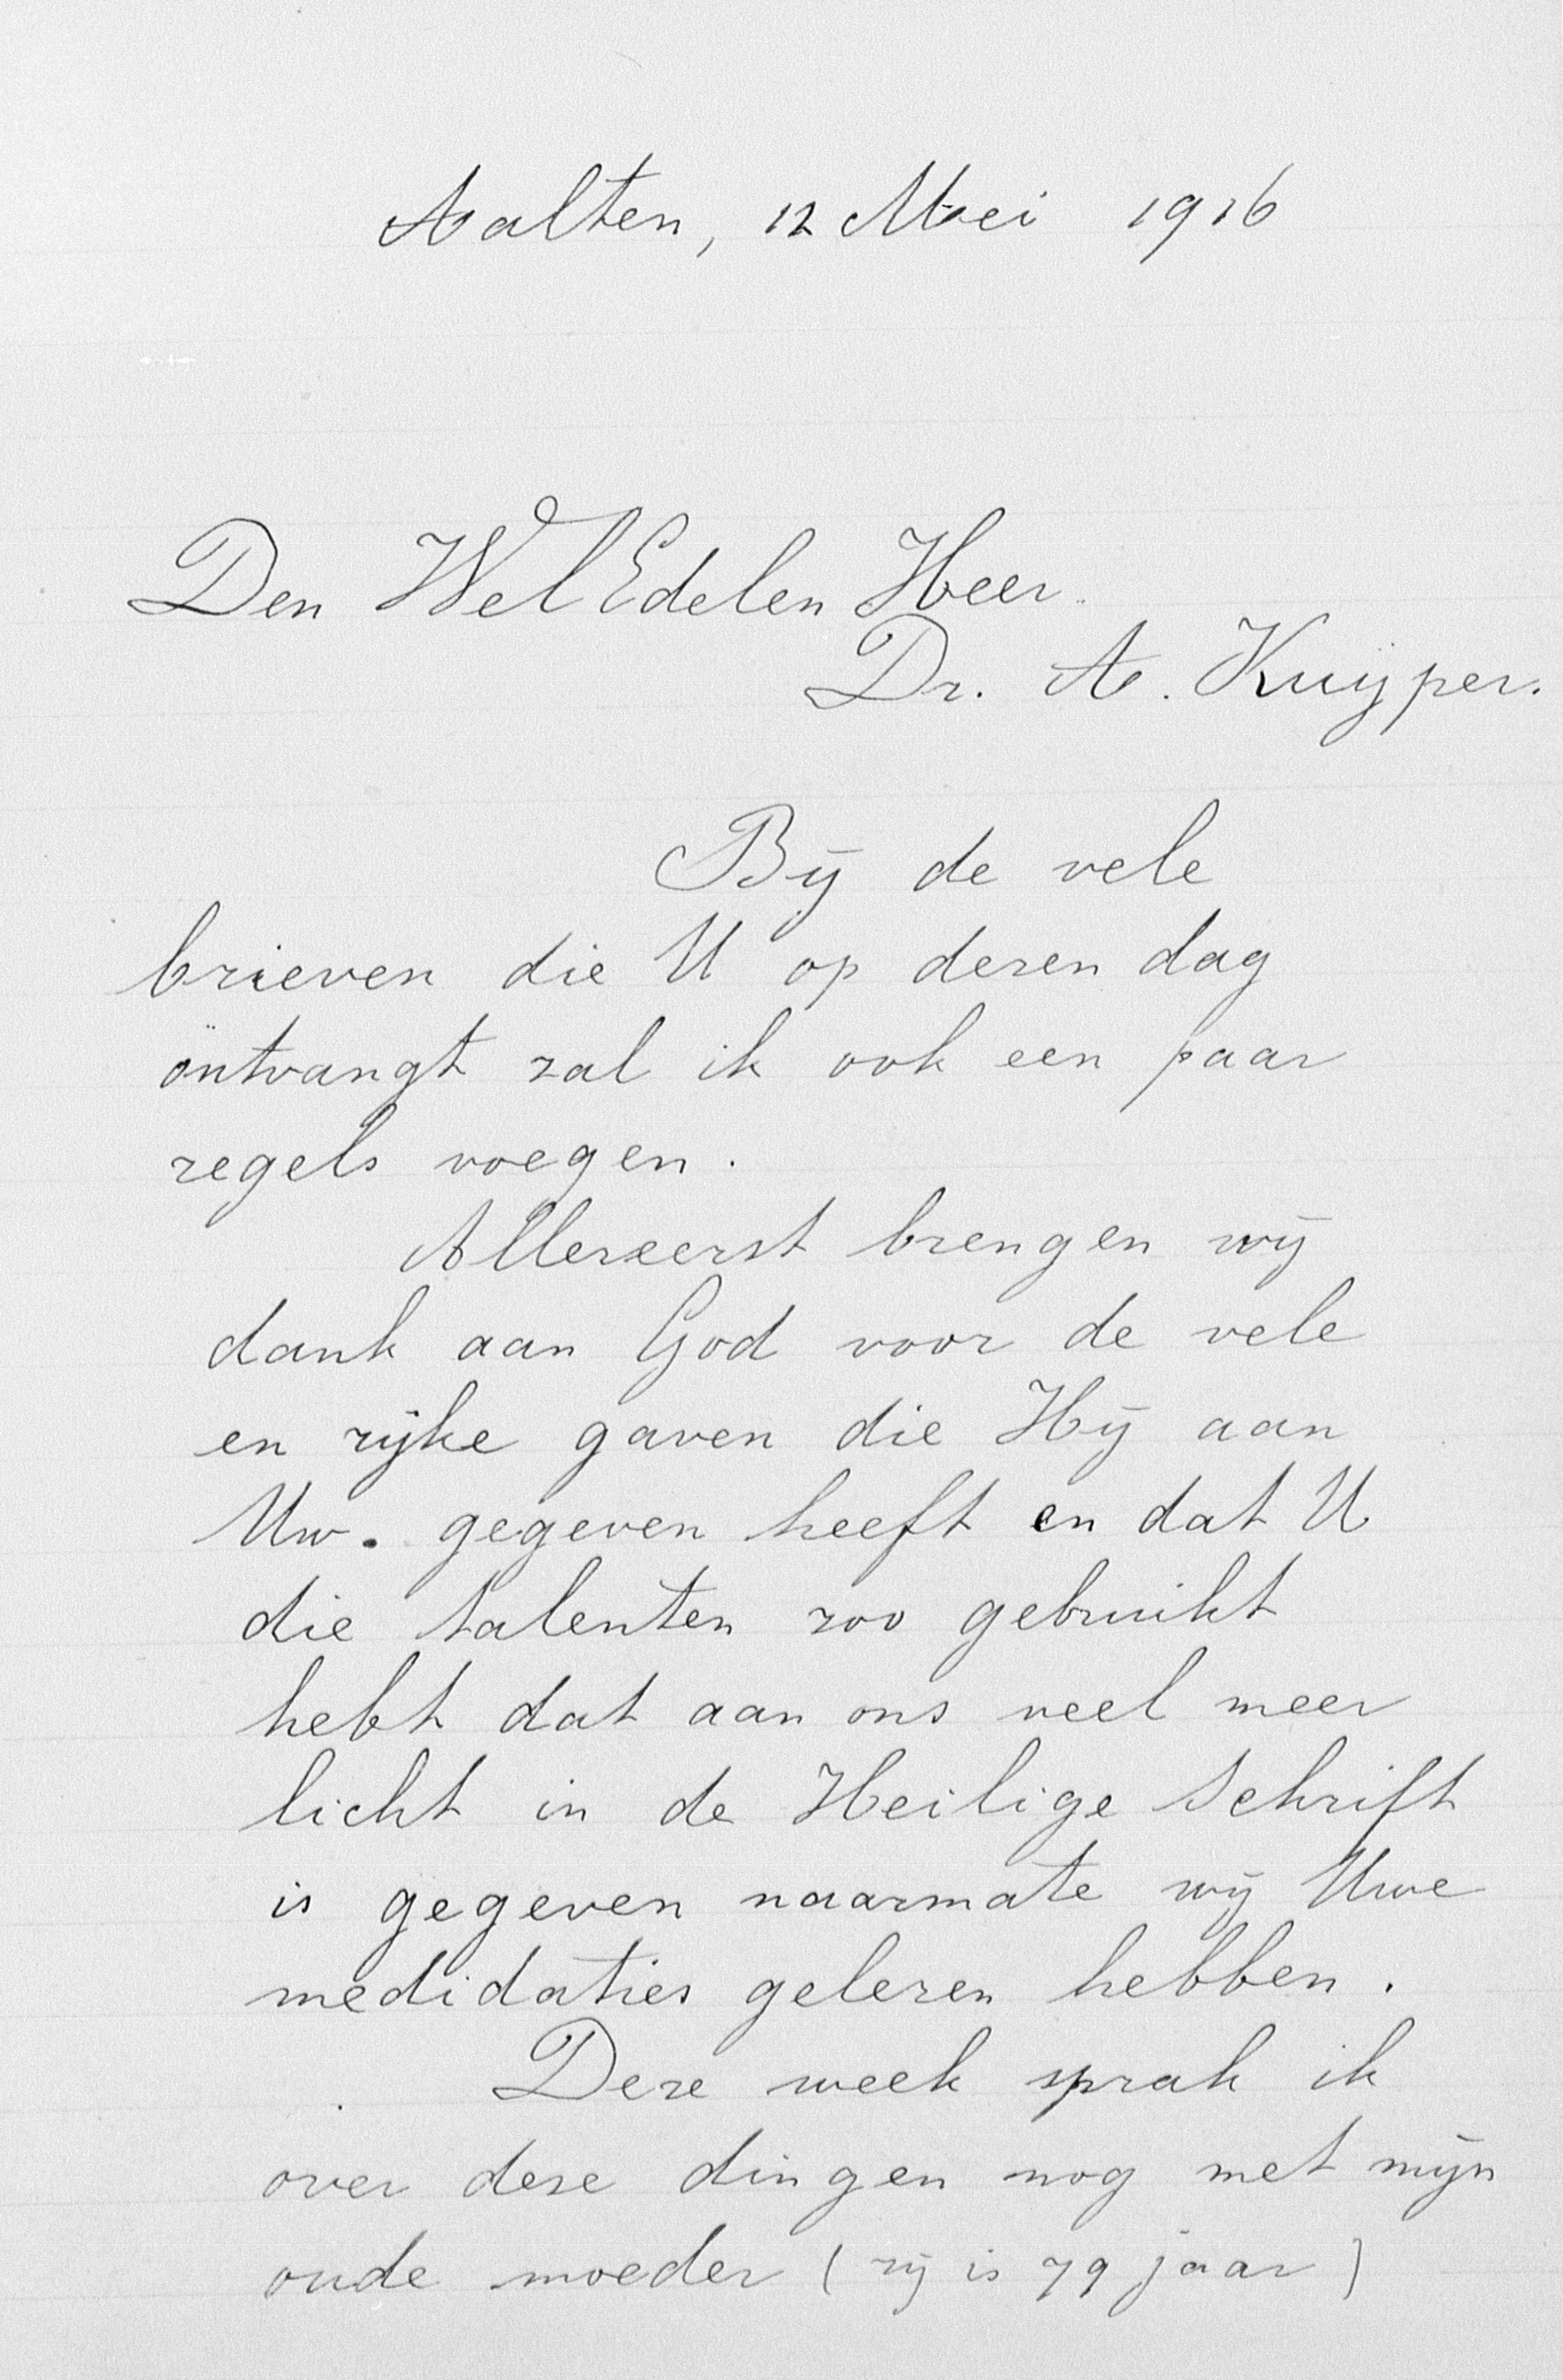 Aalten, 12 Mei 1916
Den WelEdelen Heer
Dr. A. Kuyper.
Bij de vele
brieven die U op dezen dag
ontvangt zal ik ook een paar
regels voegen.
Allereerst brengen wij
dank aan God voor de vele
en rijke gaven die Hij aan
Uw. gegeven heeft en dat U
die talenten zoo gebruikt
hebt dat aan ons veel meer
licht in de Heilige Schrift
is gegeven naarmate wij Uwe
medidaties gelezen hebben.
Deze week sprak ik
over deze dingen nog met mijn
oude moeder (zij is 79 jaar)